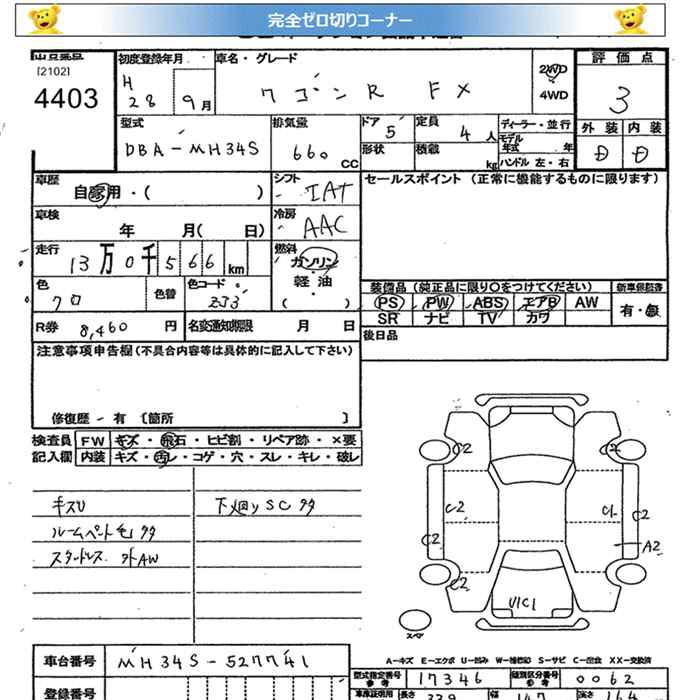 完全ゼロ切りコーナー
[2102]
4403
初度登録年月
H
28 9月
車名・グレード
ワゴンR FX
2WD
4WD
評価点
3
外装 内装
D D
型式
DBA-MH34S
排気量
660 cc
ドア 5
形状
定員 4人
積載 kg
ディーラー・並行
モデル年式 年
ハンドル 左・右
車歴
自家用・( )
シフト
IAT
セールスポイント (正常に機能するものに限ります)
車検
年 月( 日)
冷房
AAC
走行
13万0千566km
燃料
ガソリン
軽油
( )
色
クロ
色替
カラーコード
ZJ3
装備品(純正品に限り○をつけてください)
新車保証書
PS PW ABS エアB AW
SR ナビ TV カワ
有・無
R券 8,460円
名変通知期限 月 日
後日品
注意事項申告欄(不具合内容等は具体的に記入して下さい)
修復歴-有 [箇所 ]
検査員 FW キズ・飛石・ヒビ割・リペア跡・×要
記入欄 内装 キズ・汚レ・コゲ・穴・スレ・キレ・破レ
キズU
下廻りSC タタ
ルームペット毛 タタ
スタッドレス 外AW
C2 C2
C2 C1 C2
C2 A2
C2
U1C1
スペア
車台番号
MH34S-527741
登録番号
A-キズ E-エクボ U-凹み W-補修跡 S-サビ C-腐食 XX-交換済
型式指定番号
17346
類別区分番号
0062
長さ 339
幅 147
高さ 164